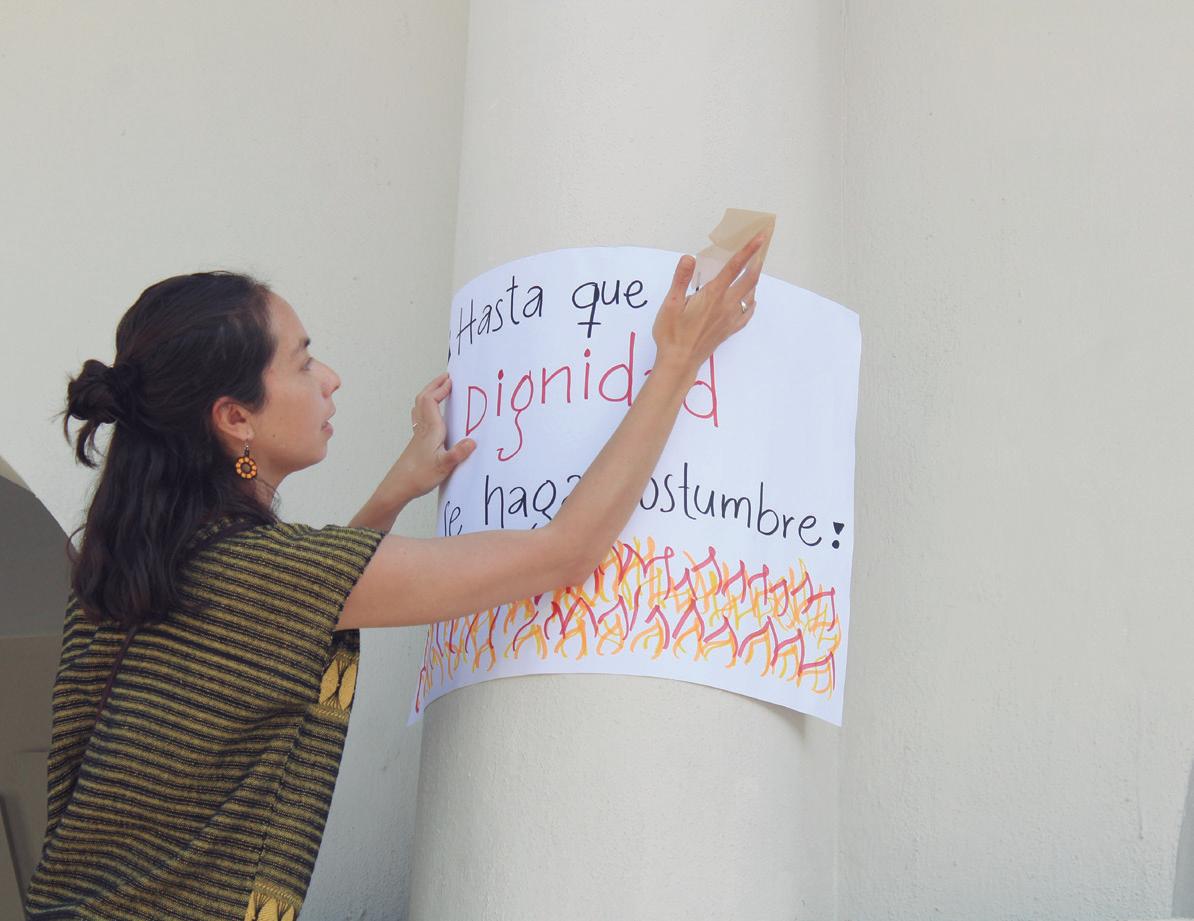 ¡Hasta que
Dignidad
se haga costumbre!